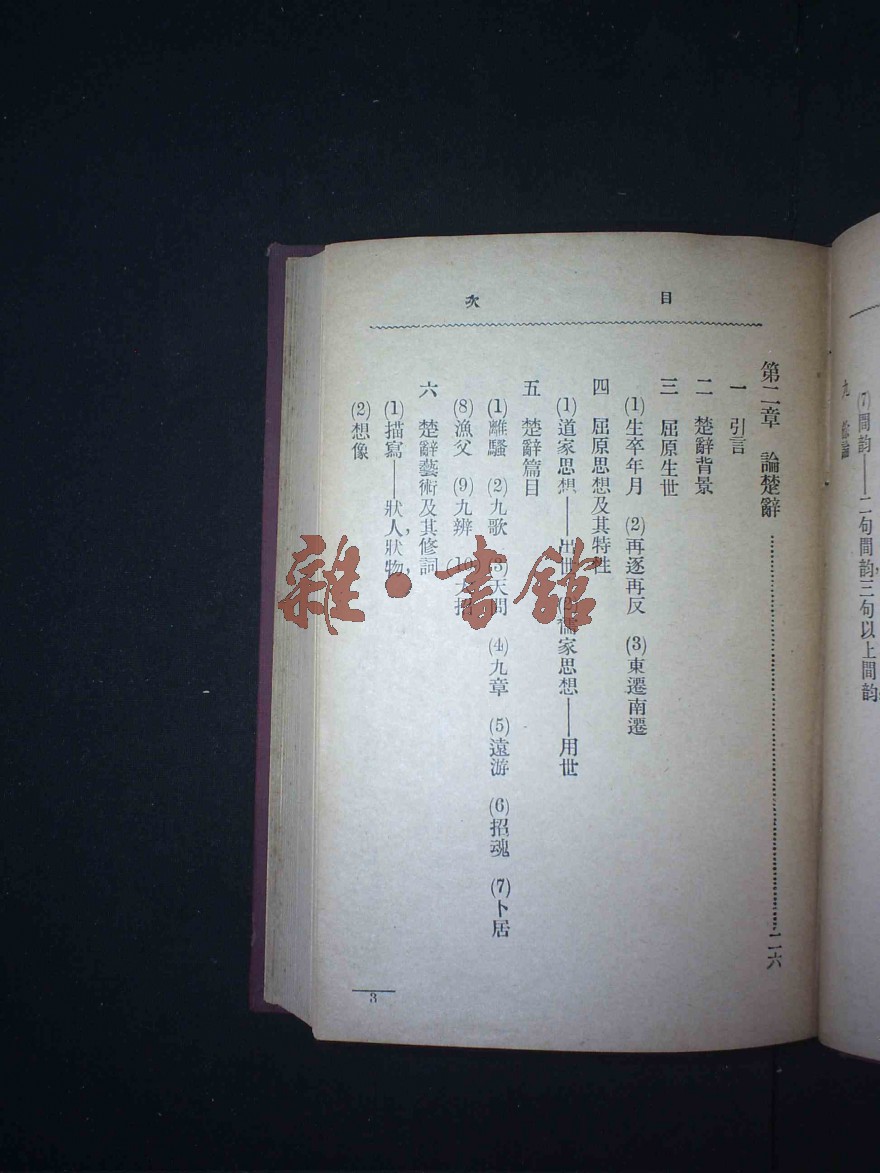 (7)間韵——二句間韵，三句以上間韵
九
目次
第二章　論楚辭………二六
一　引言
二　楚辭背景
三　屈原生世
(1)生卒年月　(2)再逐再反　(3)東遷南遷
四　屈原思想及其特性
(1)道家思想——出世　(2)儒家思想——用世
五　楚辭篇目
(1)離騷　(2)九歌　(3)天問　(4)九章　(5)遠游　(6)招魂　(7)卜居
(8)漁父　(9)九辨　(10)大招
六　楚辭藝術及其修詞
(1)描寫——狀人，狀物，
(2)想像
3
雜·書館